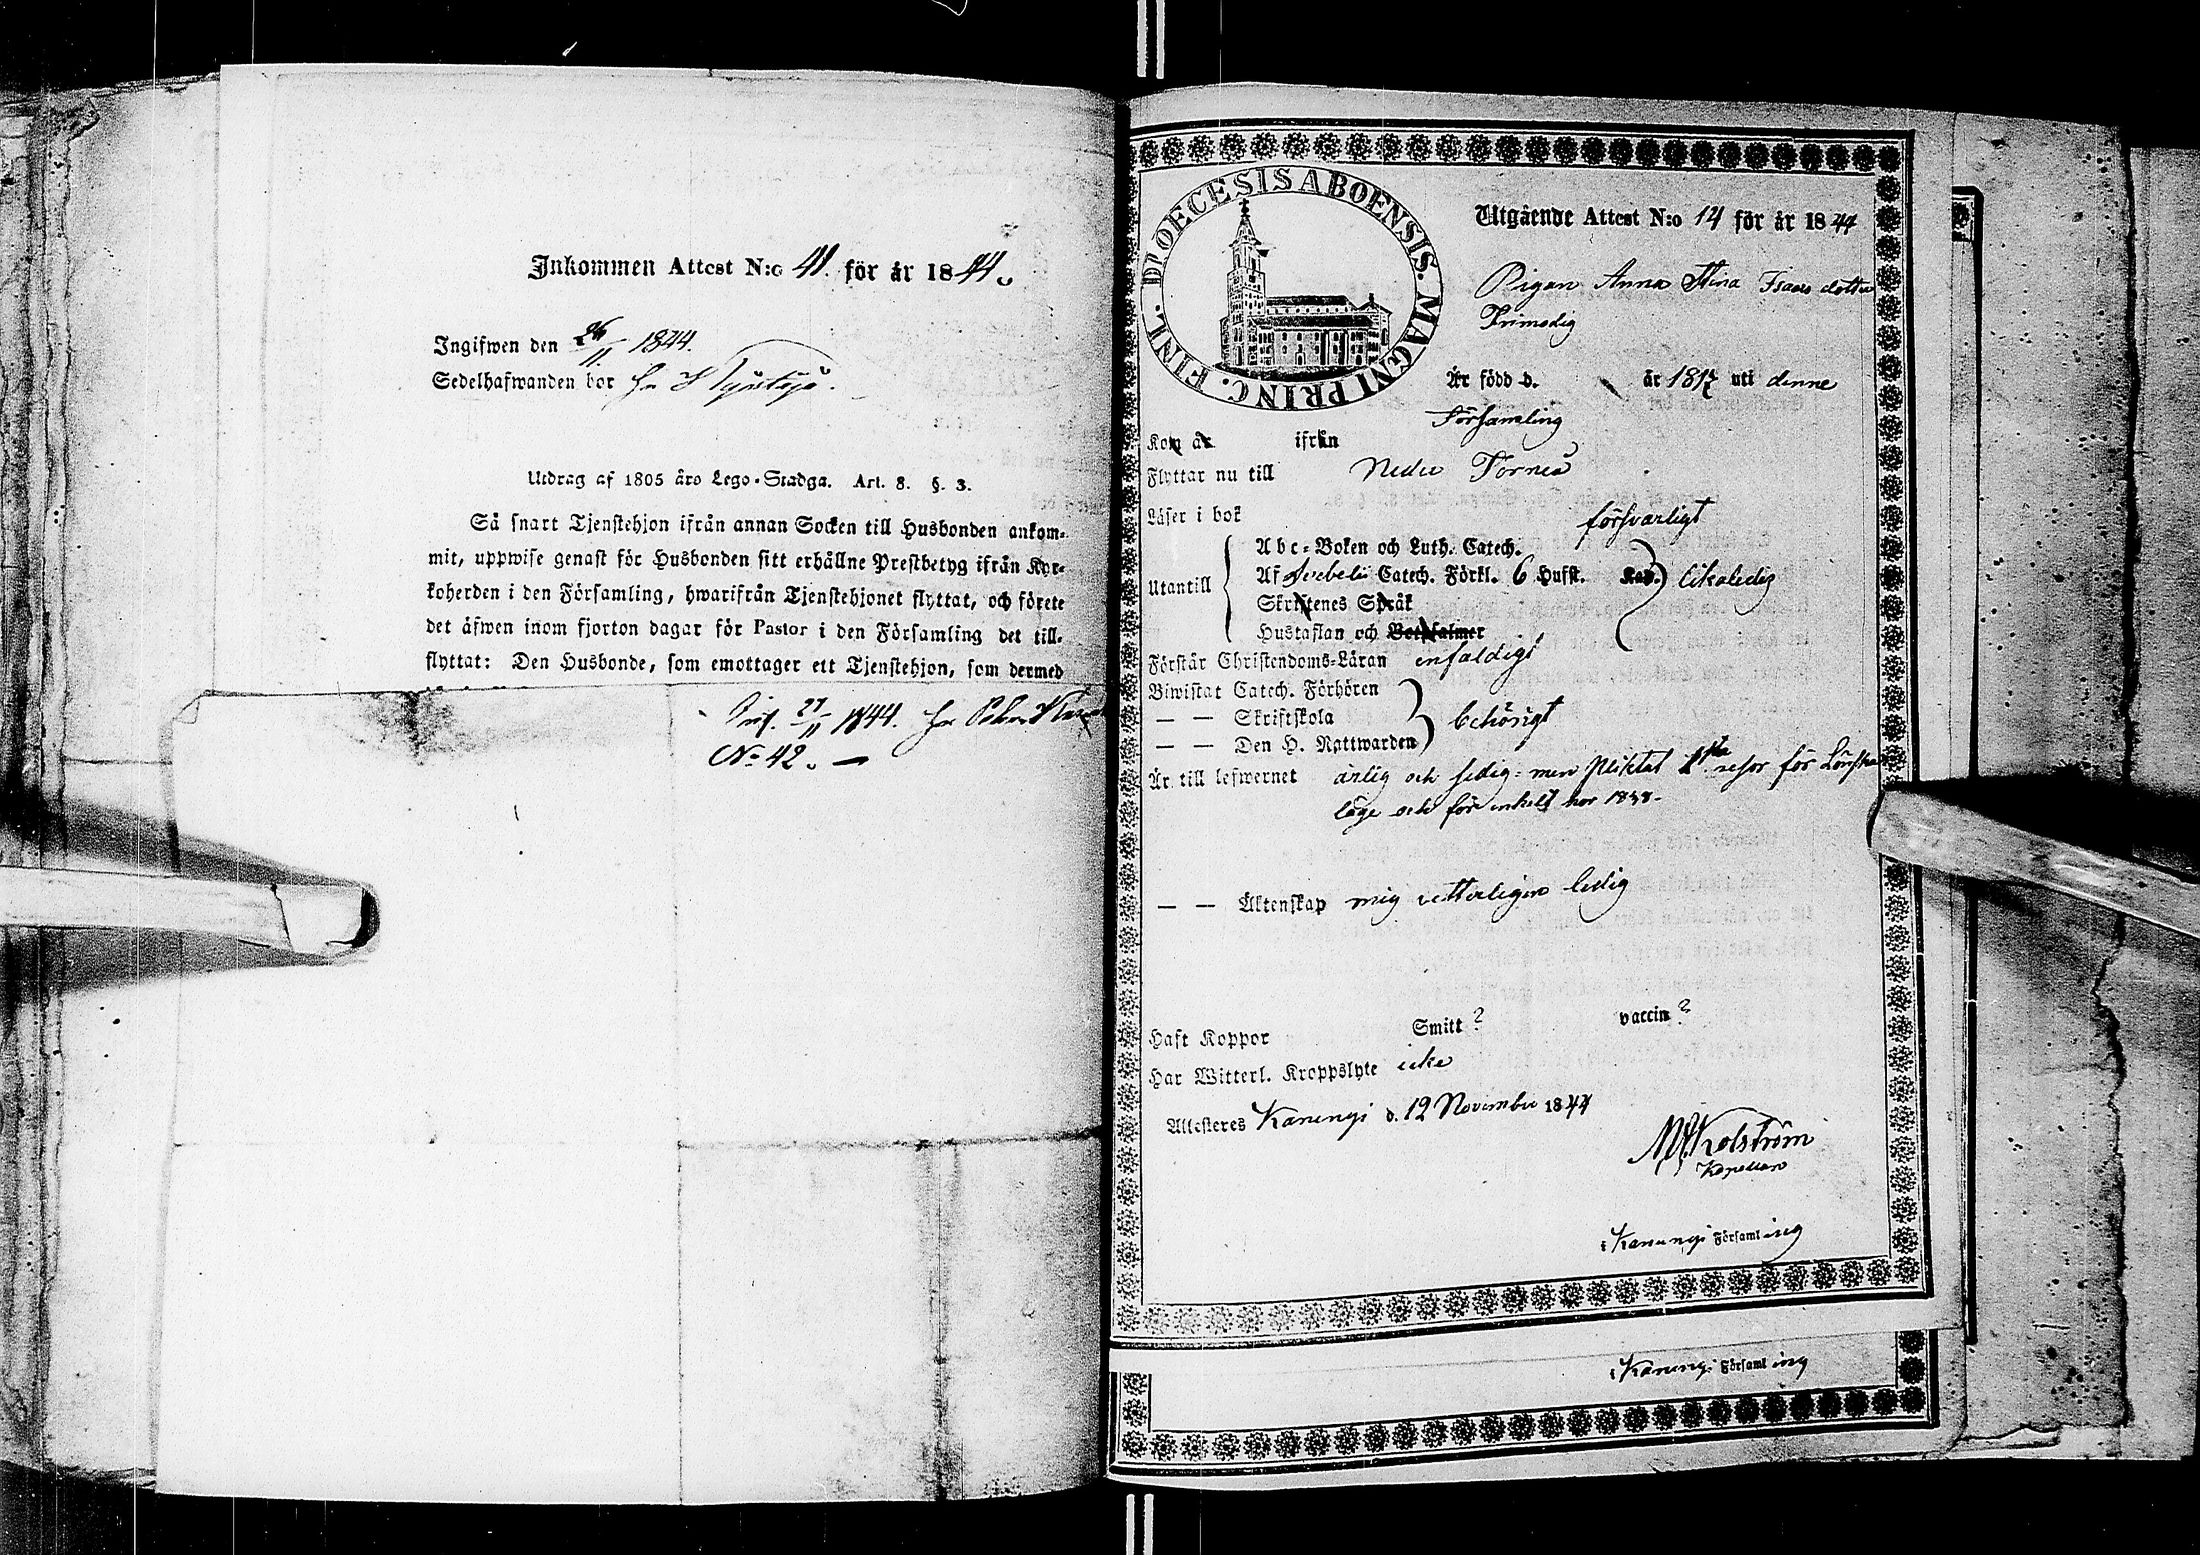 Inkommen Attest N:o 41. för år 1844.
Ingifwen den 26/11 1844.
Sedelhafwanden bor hr
Utdrag af 1805 års Lego-Stadga. Art. 8. §. 3.
Så snart Tjenstehjon ifrån annan Socken till Husbonden ankom-
mit, uppwise genast för Husbonden sitt erhållne Prestbetyg ifrån Kyr-
koherden i den Församling, hwarifrån Tjenstehjonet flyttat, och förete
det äfwen inom fjorton dagar för Pastor i den Församling det till-
flyttat: Den Husbonde, som emottager ett Tjenstehjon, som dermed
27/11 1844. hr
No 42. —
DIOECESIS ABOENSIS. MAGNI PRINC. FINL.
Utgående Attest N:o 14 för år 1844
Pigan Anna Stina Isaacsdotter
Är född d. år 1817 uti denne
Församling
Kom år ifrån
Flyttar nu till Neder Torneå
Läser i bok försvarligt
Utantill
Abc-Boken och Luth. Catech.
Af Svebelii Catech. Förkl. 6 Hufst. Kap. likaledes
Skriftenes Språk
Hustaflan och Botpsalmer
Förstår Christendoms-Läran enfaldigt
Biwistat Catech. Förhören
— — Skriftskola behörigt
— — Den H. Nattwarden
Är till lefwernet ärlig och sedig: men pliktat 1sta resor för Lönska
läge och för enkelt hor 1838.
— — Äktenskap mig vetterligen ledig
Haft Koppor Smitt? vaccin?
Har Witterl. Kroppslyte icke
Attesteres Karungi d. 12 November 1844
Kolström
Kapellan
i Karungi Församling
i Karungi Församling